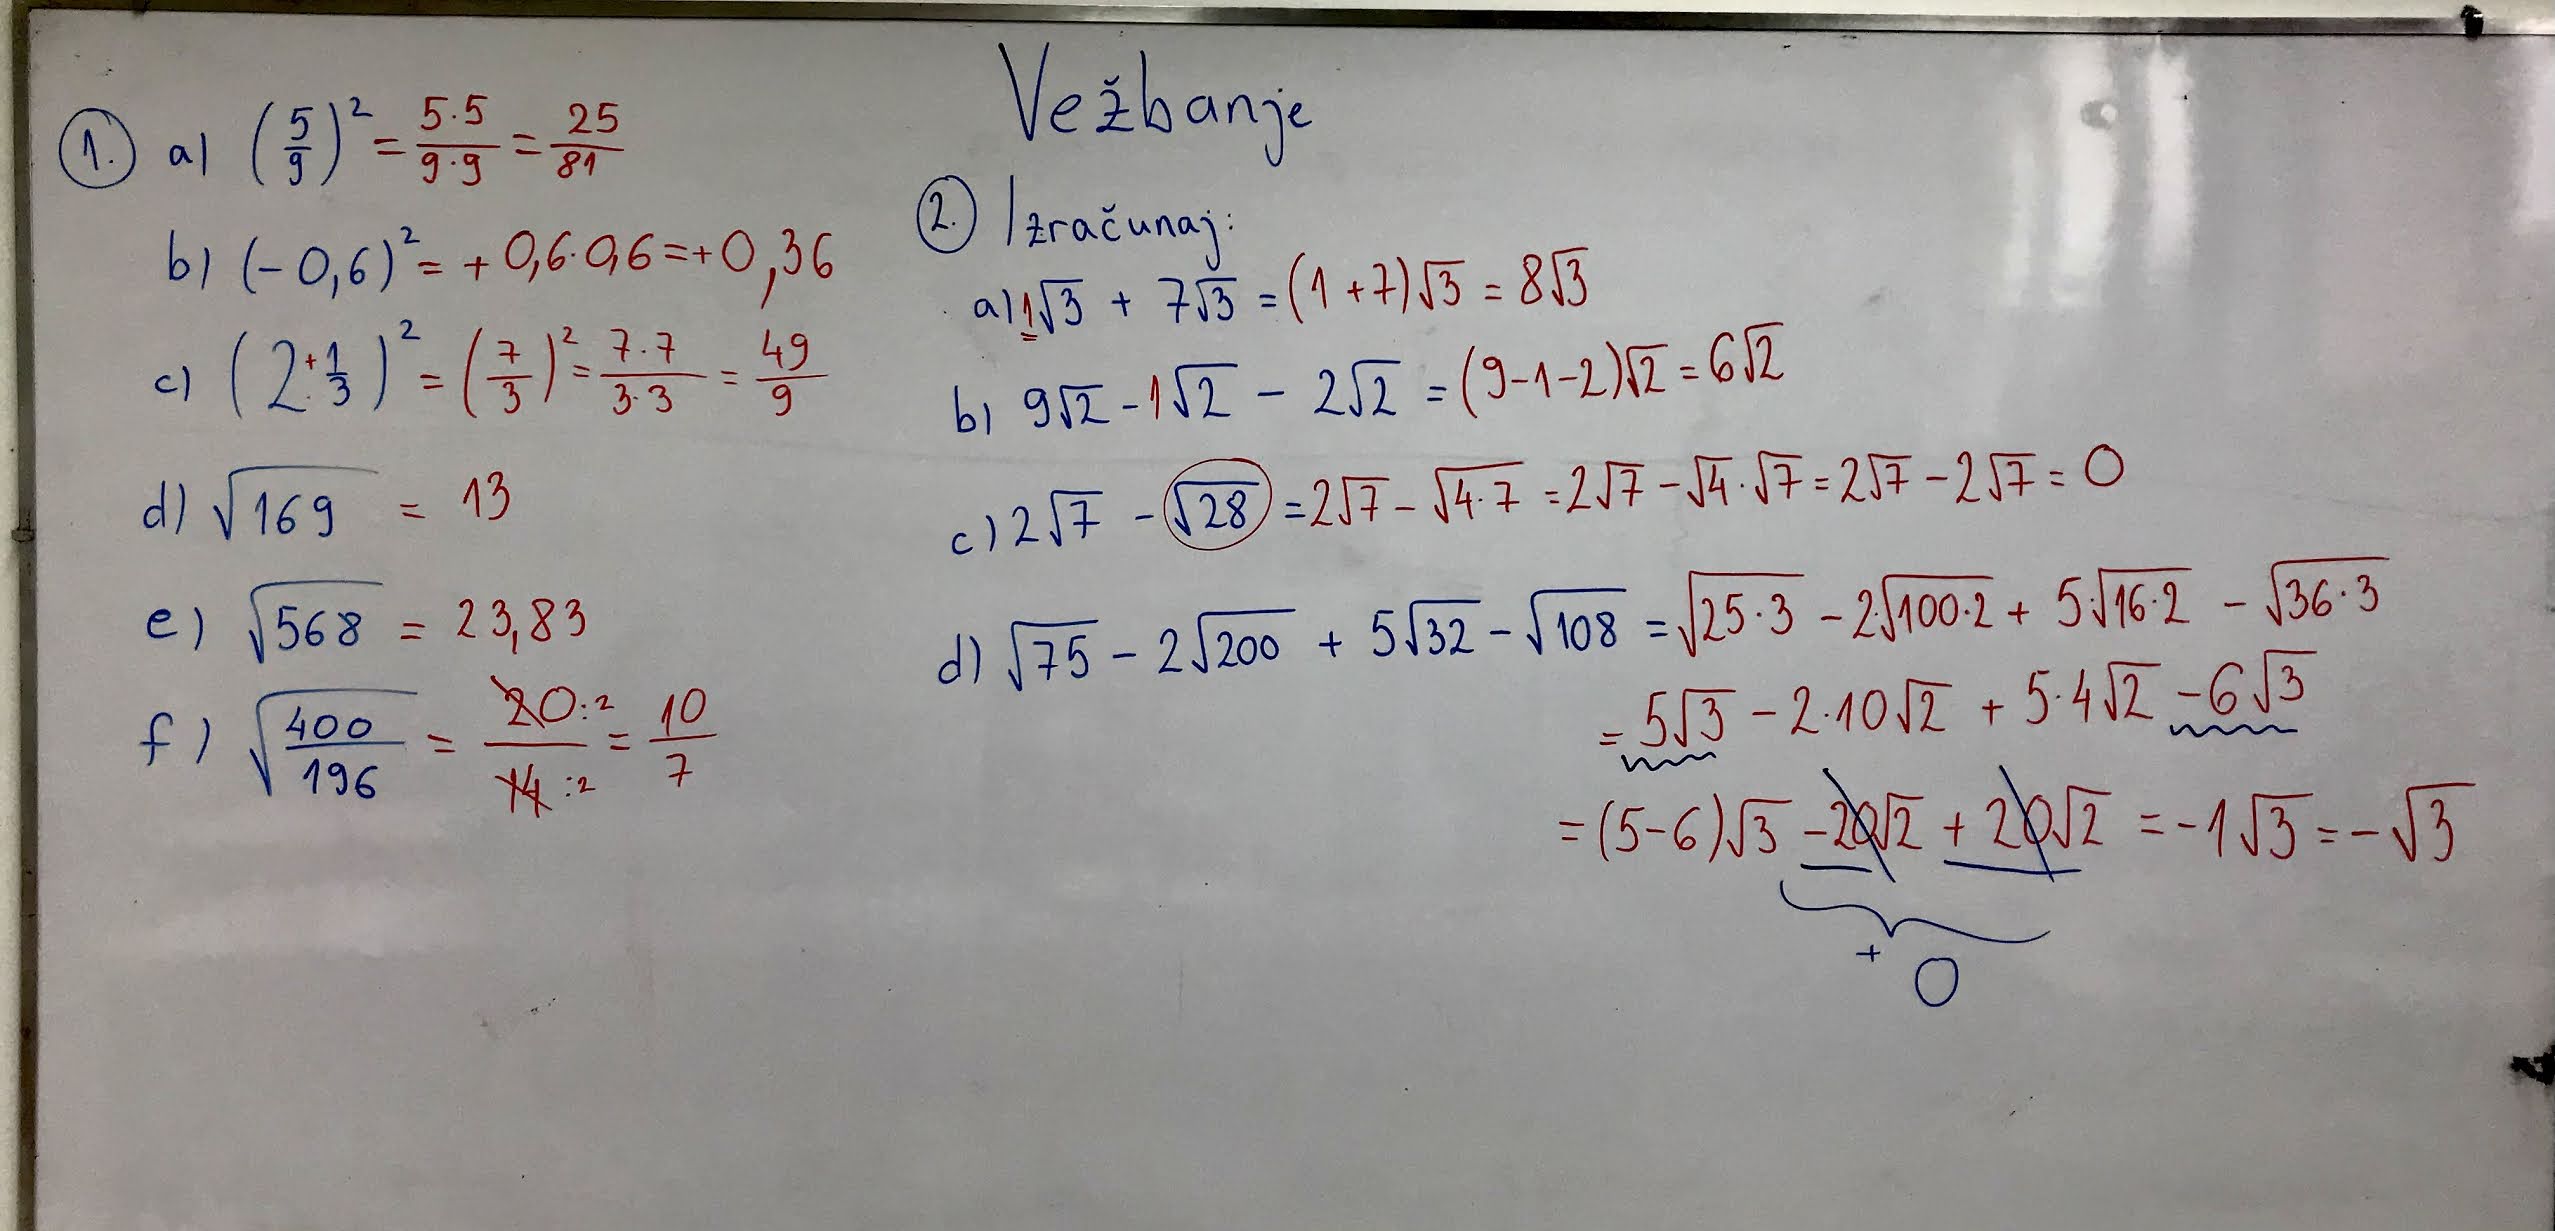 Vežbanje
1. a) (5/9)² = 5·5/9·9 = 25/81
b) (-0,6)² = + 0,6·0,6 = + 0,36
c) (2 + 1/3)² = (7/3)² = 7·7/3·3 = 49/9
d) √169 = 13
e) √568 = 23,83
f) √400/196 = 20:2/14:2 = 10/7
2. Izračunaj:
a) 1√3 + 7√3 = (1+7)√3 = 8√3
b) 9√2 - 1√2 - 2√2 = (9-1-2)√2 = 6√2
c) 2√7 - √28 = 2√7 - √4·7 = 2√7 - √4·√7 = 2√7 - 2√7 = 0
d) √75 - 2√200 + 5√32 - √108 = √25·3 - 2·√100·2 + 5·√16·2 - √36·3
= 5√3 - 2·10√2 + 5·4√2 - 6√3
= (5-6)√3 - 20√2 + 20√2 = -1√3 = -√3
+ 0